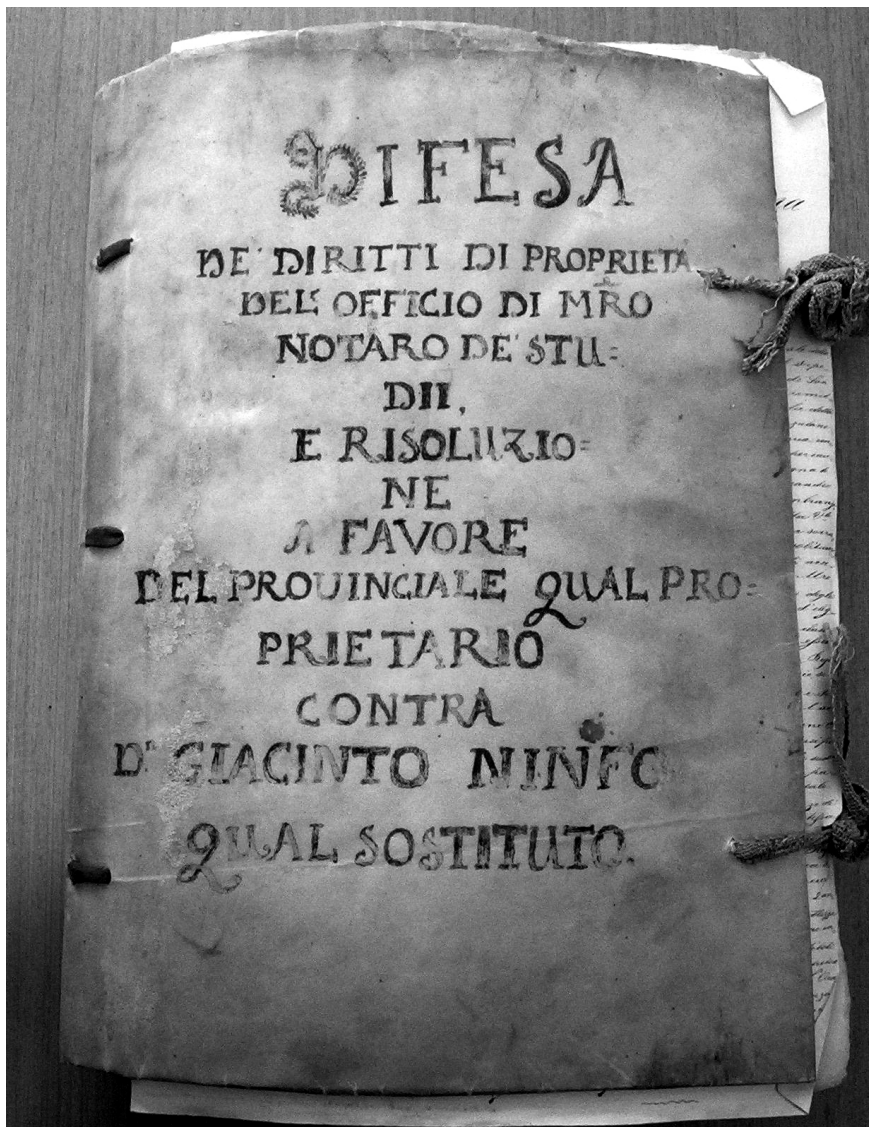 DIFESA
DE' DIRITTI DI PROPRIETA
DEL' OFFICIO DI MRO
NOTARO DE' STU=
DII,
E RISOLUZIO=
NE
A FAVORE
DEL PROUINCIALE QUAL PRO=
PRIETARIO
CONTRA
Dn GIACINTO NINFO
QUAL SOSTITUTO.